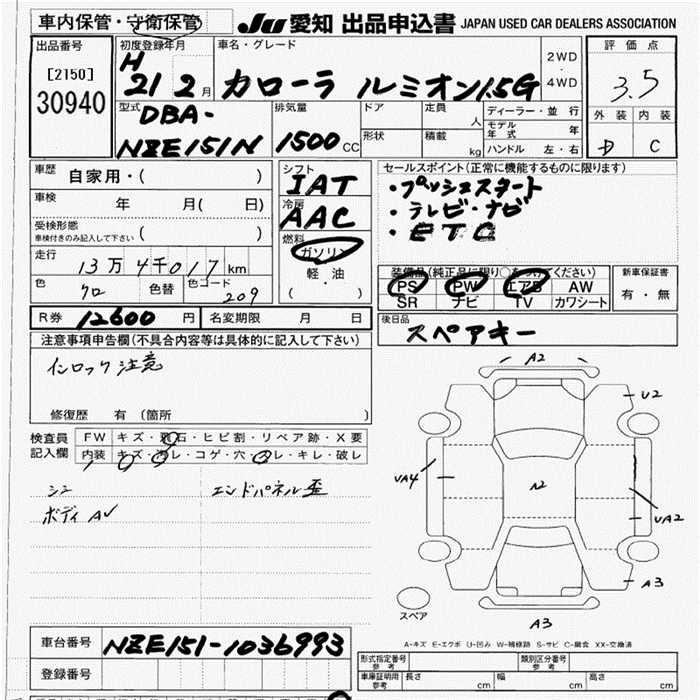 車内保管・守衛保管
JU 愛知 出品申込書 JAPAN USED CAR DEALERS ASSOCIATION
出品番号
[2150]
30940
初度登録年月
H 21 2 月
車名・グレード
カローラ ルミオン 1.5G
2WD
4WD
評価点
3.5
外装 内装
D C
型式
DBA-
NZE151N
排気量
1500 CC
ドア
形状
定員 人
積載 kg
ディーラー・並行
モデル年式 年
ハンドル 左・右
車歴 自家用・( )
車検 年 月( 日)
受検形態
車検付きのみ記入して下さい ( )
走行 13万4千017km
色 クロ 色替 色コード 209
シフト
IAT
冷房
AAC
燃料
ガソリン
軽・油
( ・ )
セールスポイント(正常に機能するものに限ります)
・プッシュスタート
・テレビ・ナビ
・ETC
装備品(純正品に限り○をつけてください)
PS PW エアB AW
SR ナビ TV カワシート
新車保証書
有・無
R券 12600 円 名変期限 月 日
後日品
スペアキー
注意事項申告欄(不具合内容等は具体的に記入して下さい)
インロック注意
修復歴 有 (箇所 )
検査員
記入欄
FW キズ・飛石・ヒビ割・リペア跡・X要
内装 キズ・汚レ・コゲ・穴・スレ・キレ・破レ
ボディ AU
エンドパネル歪
A2
U2
UA4
A2
UA2
A3
A3
スペア
A-キズ E-エクボ U-凹み W-補修跡 S-サビ C-腐食 XX-交換済
車台番号 NZE151-1036993
登録番号
形式指定番号
参考
類別区分番号
参考
車庫証明用
参考
長さ cm 幅 cm 高さ cm